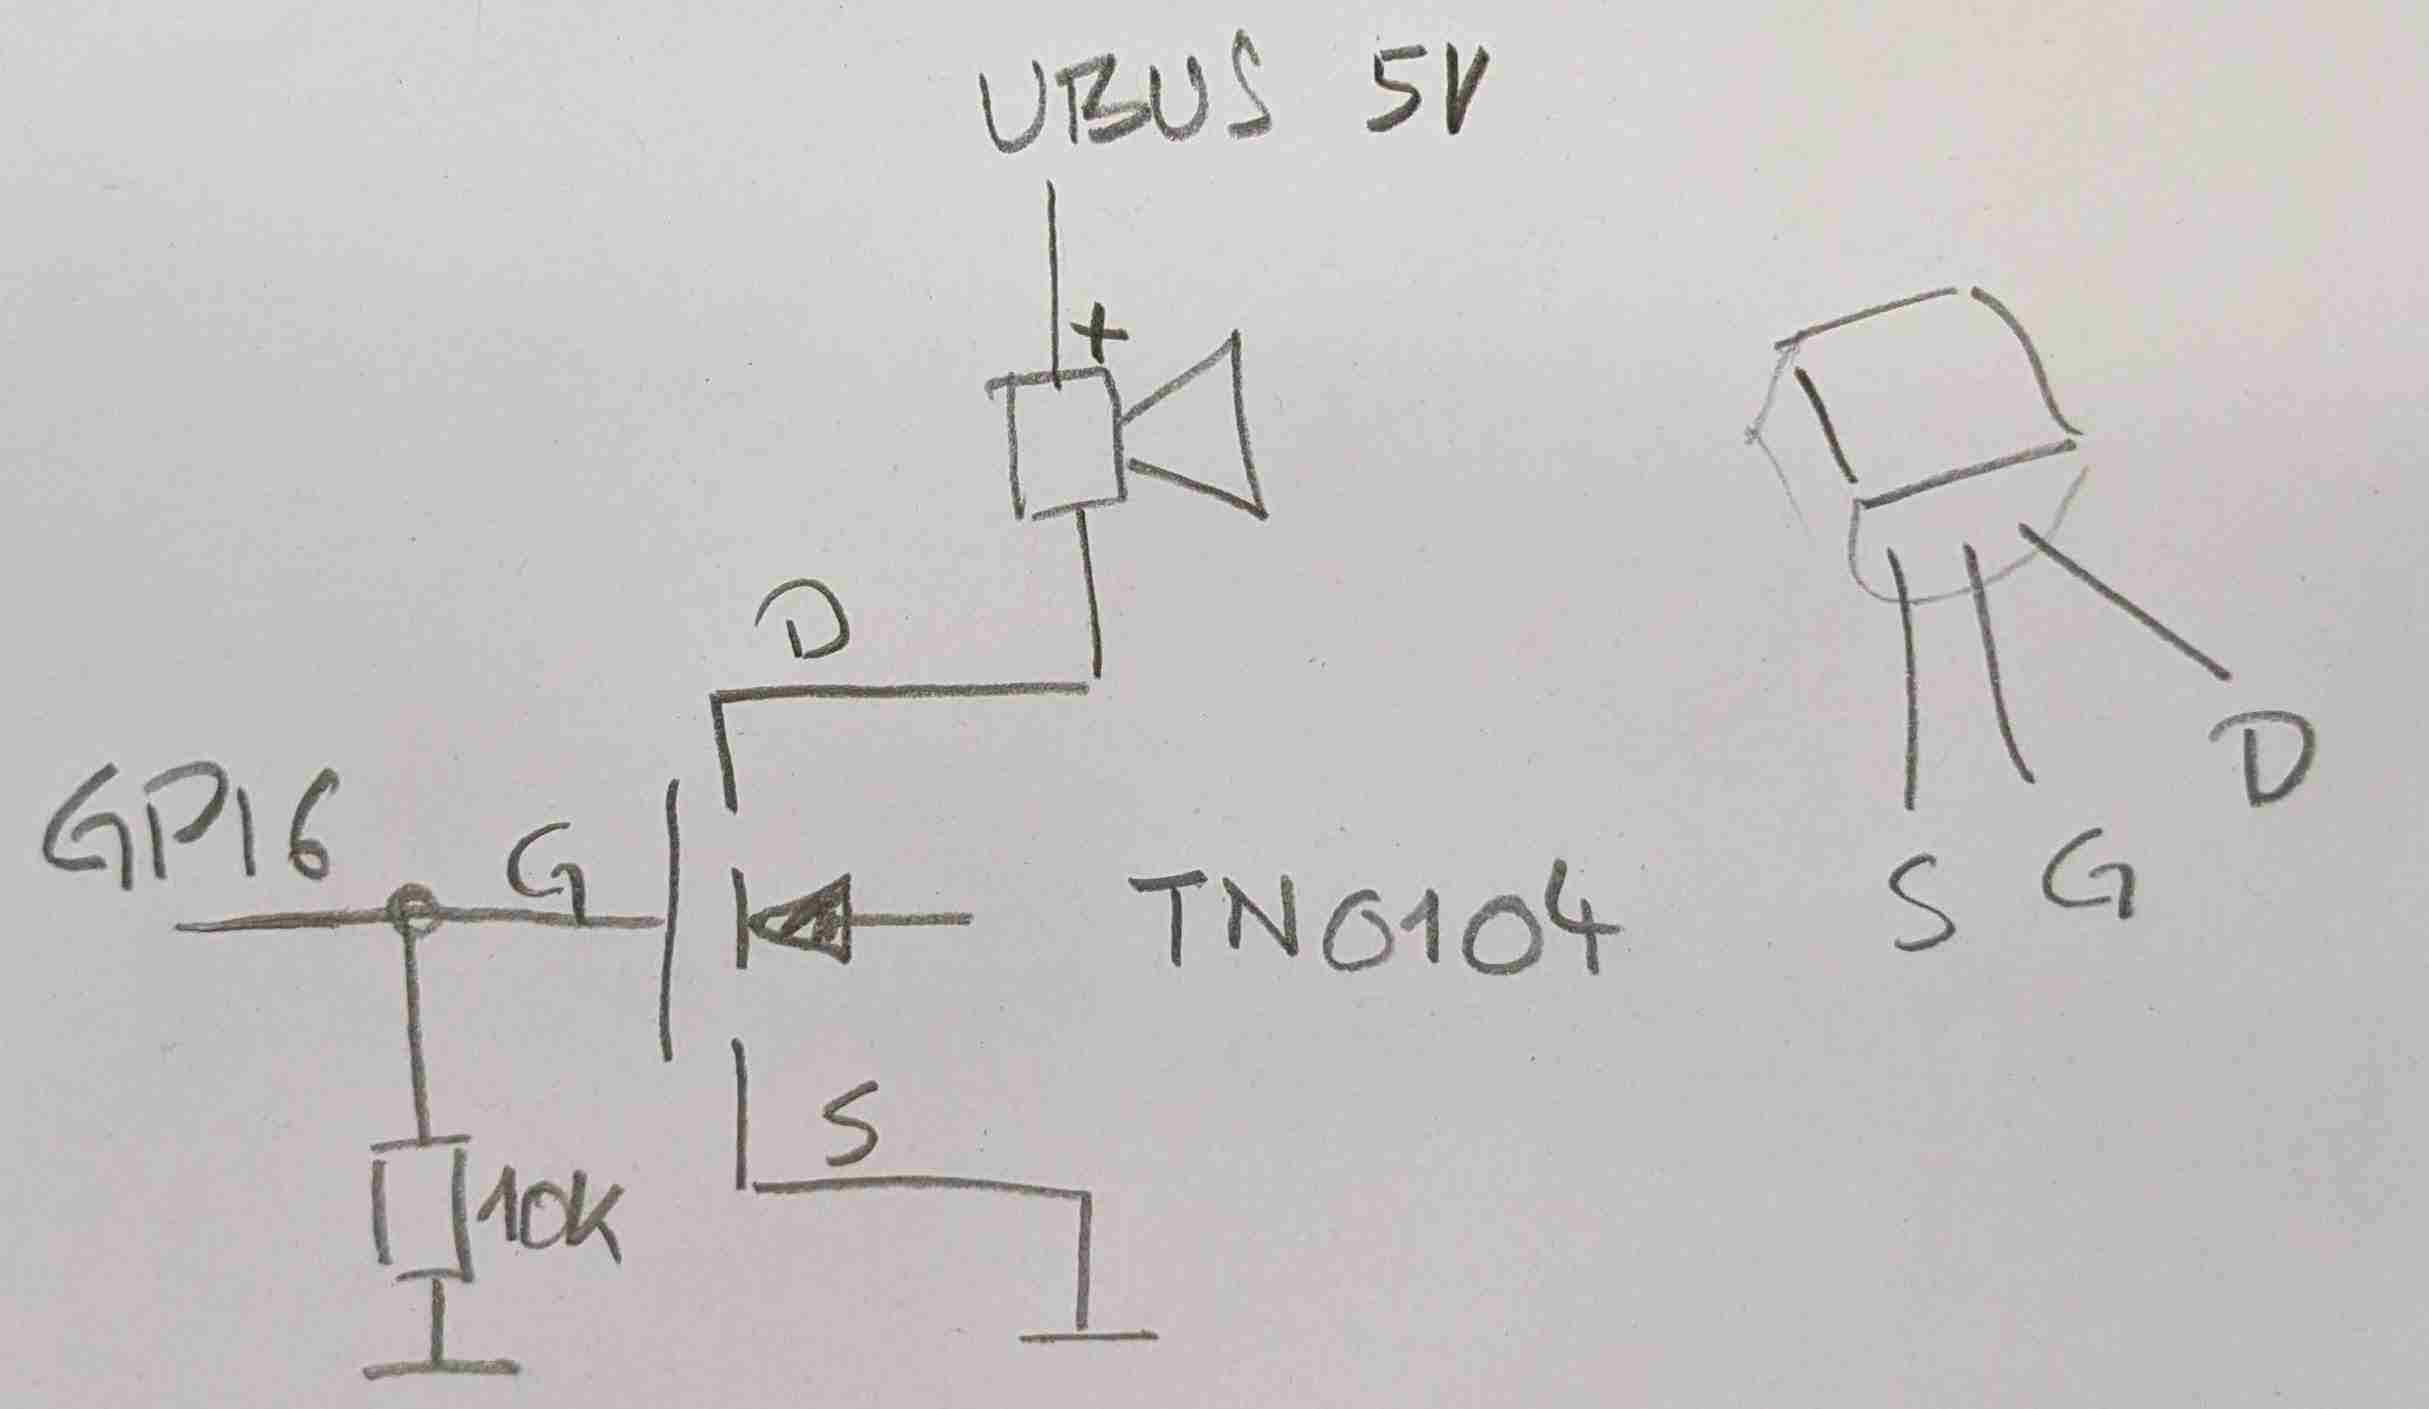 UBUS 5V
+
D
GP16
G
TN0104
S
10K
S G D